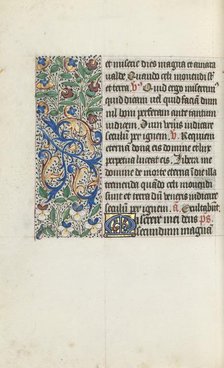 et miserie dies magna et amara
valde Quando celi mouendi st̄
et terra v̄ Quid ergo miserrim̄
quid dicam vel quid faciā dum
nul bom perferam ante tantum
iudicem Dum venis iudicare
seculū per ignem R Requiem
eternā dona eis domine et lux
perpetua luceat eis Libera me
domine de morte eterna ī die illa
tremenda quādo celi mouendi
sunt et terra dū veneris iudicare
seculum per ignem a Exultabūt
Miserere mei deus ps
secundum magnā